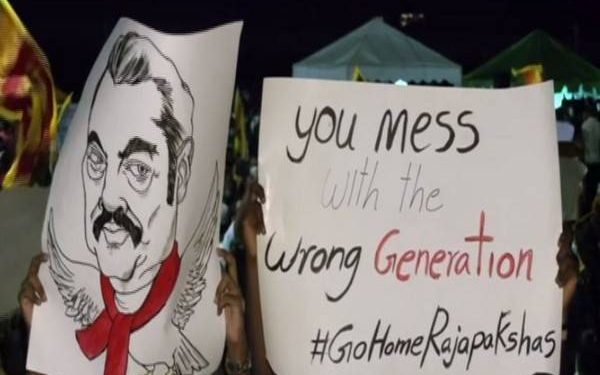 you mess
with the
wrong Generation
#GoHomeRajapakshas